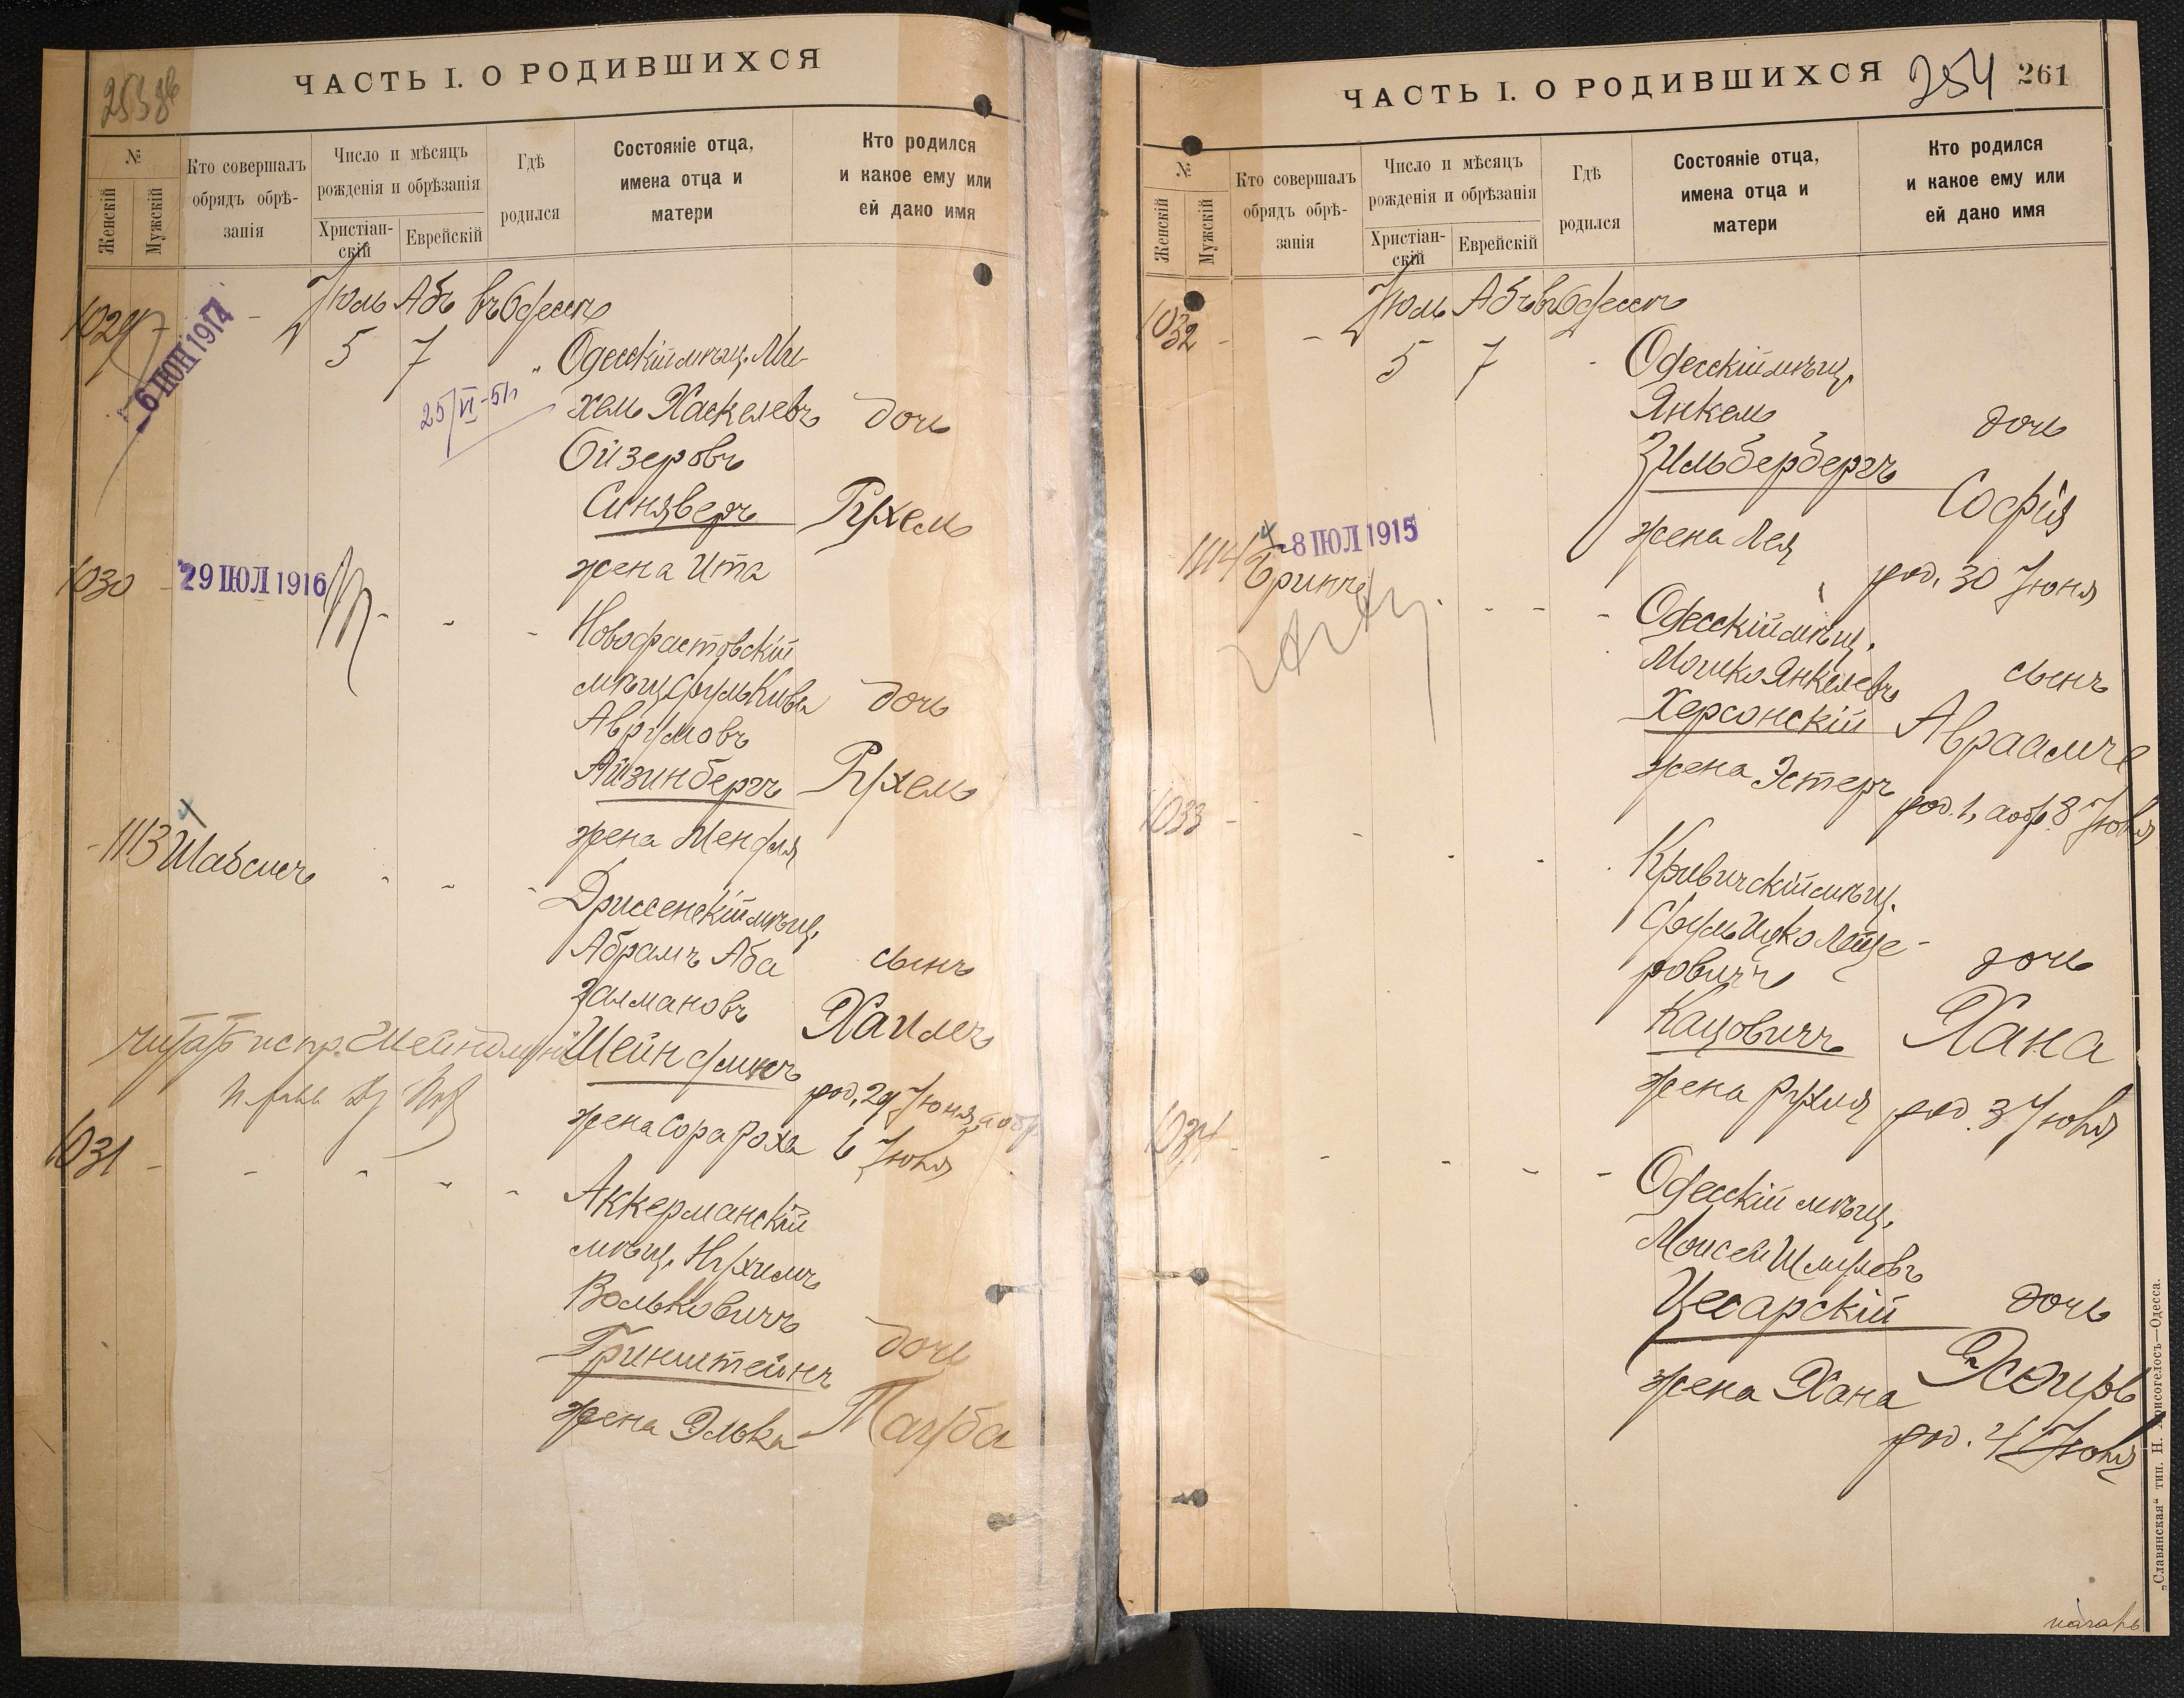 ЧАСТЬ I. О РОДИВШИХСЯ
№
Женскій
Мужскій
Кто совершалъ
обрядъ обрѣ-
занія
Число и мѣсяцъ
рожденія и обрѣзанія
Христіан-
скій
Еврейскій
Гдѣ
родился
Состояніе отца,
имена отца и
матери
Кто родился
и какое ему или
ей дано имя
1029
6 ІЮН 1917
Іюль Абъ въ Одессѣ
5 7 Одесскій мѣщ. Ми-
25/VI-51
хель Хаскелевъ дочь
Ойзеровъ
Синяверъ Рухель
жена Ита
1030 29 ІЮЛ 1916
Новофастовскій
мѣщ. Сруль Кива дочь
Аврумовъ
Айзинбергъ Рухель
жена Мендля
1113 Шабсисъ
Дриссенскій мѣщ.
Абрамъ Аба сынъ
Залмановъ Хаимъ
читать испр.
Шейндлинъ род. 29 Іюня, а обр.
жена Сора Роха 6 Іюля
1031
Аккерманскій
мѣщ. Нухимъ
Вольковичъ
Гринштейнъ дочь
жена Элька Тауба
ЧАСТЬ I. О РОДИВШИХСЯ 254 261
№
Женскій
Мужскій
Кто совершалъ
обрядъ обрѣ-
занія
Число и мѣсяцъ
рожденія и обрѣзанія
Христіан-
скій
Еврейскій
Гдѣ
родился
Состояніе отца,
имена отца и
матери
Кто родился
и какое ему или
ей дано имя
1032
Іюль Абъ въ Одессѣ
5 7 Одесскій мѣщ.
Янкель дочь
Зильбербергъ Софія
жена Лея род. 30 Іюня
8 ІЮЛ 1915
1114
Одесскій мѣщ.
Мошко Янкелевъ сынъ
Херсонскій Авраамъ
жена Эстеръ род. 1, а обр. 8 Іюля
1033
Кривичскій мѣщ.
Сруль Ицко Лейзе-
ровичъ дочь
Кацовичъ Хана
жена Рухля род. 3 Іюля
1034
Одесскій мѣщ.
Моисей Шмулевъ
Цесарскій дочь
жена Хана Эсѳирь
род. 4 Іюля
„Славянская“ тип. Н. Хрисогелосъ—Одесса.